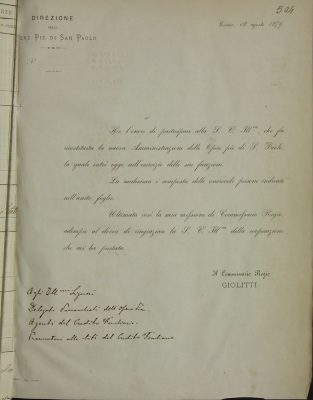 524
DIREZIONE
DELLE
OPERE PIE DI SAN PAOLO
Torino 18 agosto 1879
N.
Ho l'onore di partecipare alla S. V. Ill.ma, che fu
ricostituita la nuova Amministrazione delle Opere pie di S. Paolo,
la quale entrò oggi nell'esercizio delle sue funzioni.
La medesima è composta delle onorevoli persone indicate
nell'unito foglio.
Ultimata così la mia missione di Commissario Regio,
adempio al dovere di ringraziare la S. V. Ill.ma della cooperazione
che mi ha prestata.
Il Commissario Regio
GIOLITTI.
Agli Ill.mi Signori
Delegati
Agenti del Credito Fondiario
alle liti del Credito Fondiario